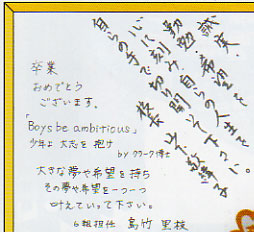 誠実
勤勉、希望を
心に刻み
自らの手で
自らの人生を
切り開いて下さい。
校長
卒業
おめでとう
ございます。
「Boys be ambitious」
少年よ 大志を 抱け
by クラーク博士
大きな夢や希望を持ち
その夢や希望を一つ一つ
叶えていって下さい。
6組担任 島竹 里枝